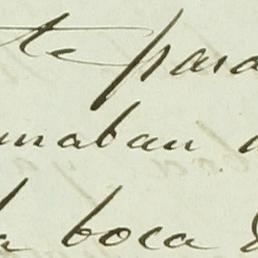 te para
maban
la boca